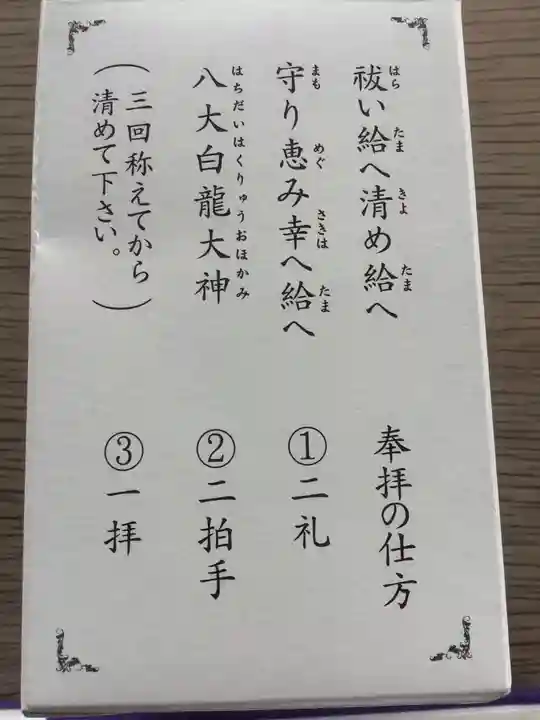 祓い給へ清め給へ
守り恵み幸へ給へ
八大白龍大神
(三回称えてから
清めて下さい。)
奉拝の仕方
①二礼
②二拍手
③一拝
はら
たま
きよ
たま
まも
めぐ
さきは
たま
はちだいはくりゅうおほかみ